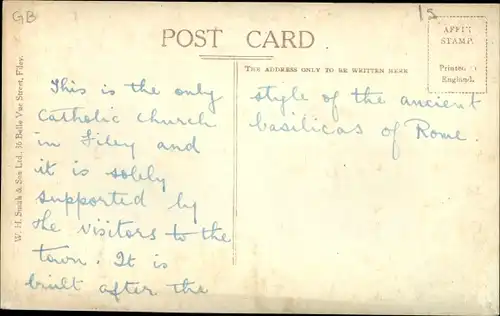 GB
1s
POST CARD
AFFIX
STAMP.
Printed in
England.
THE ADDRESS ONLY TO BE WRITTEN HERE
W. H. Smith & Son Ltd. 16 Belle Vue Street, Filey.
This is the only
Catholic church
in Filey and
it is solely
supported by
the visitors to the
town. It is
built after the
style of the ancient
basilicas of Rome.